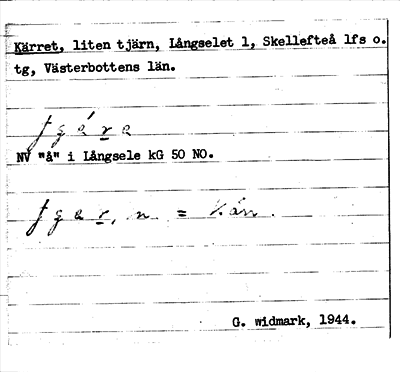 Kärret, liten tjärn, Långselet 1, Skellefteå lfs o.
tg, Västerbottens län.
NV "å" i Långsele kG 50 NO.
n. = kärr.
G. widmark, 1944.